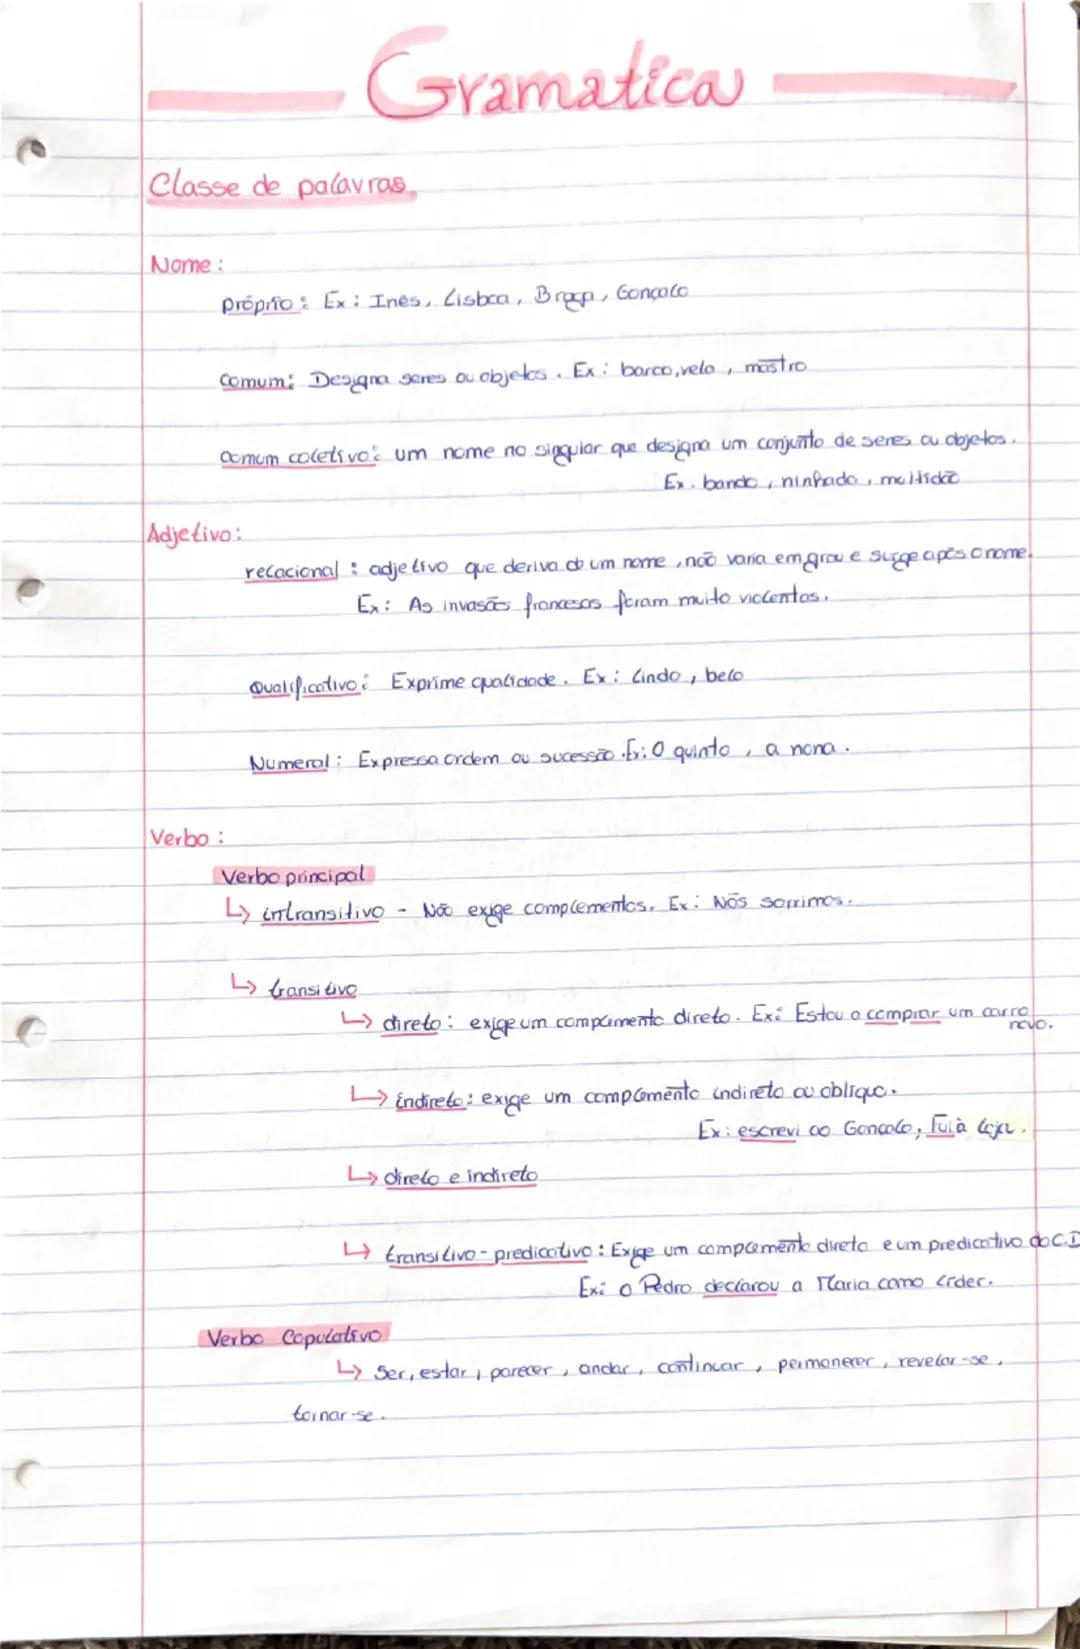 Gramatica
Classe de palavras
Nome :
próprio : Ex : Inês, Lisboa, Braga, Gonçalo
Comum : Designa seres ou objetos. Ex : barco, vela, mastro
comum coletivo : um nome no singular que designa um conjunto de seres ou objetos.
Ex. bando, ninhada, multidão
Adjetivo :
relacional : adjetivo que deriva de um nome, não varia em grau e surge após o nome.
Ex : As invasões francesas foram muito violentas.
Qualificativo : Exprime qualidade. Ex : lindo, belo
Numeral : Expressa ordem ou sucessão. Ex: O quinto, a nona.
Verbo :
Verbo principal
↳ intransitivo - Não exige complementos. Ex : Nós sorrimos.
↳ transitivo
↳ direto : exige um complemento direto. Ex: Estou a comprar um carro
novo.
↳ indireto : exige um complemento indireto ou oblíquo.
Ex : escrevi ao Gonçalo, Fui à loja.
↳ direto e indireto
↳ transitivo-predicativo : Exige um complemento direto e um predicativo do C.D
Ex: o Pedro declarou a Maria como líder.
Verbo Copulativo
↳ Ser, estar, parecer, andar, continuar, permanecer, revelar-se,
tornar-se.